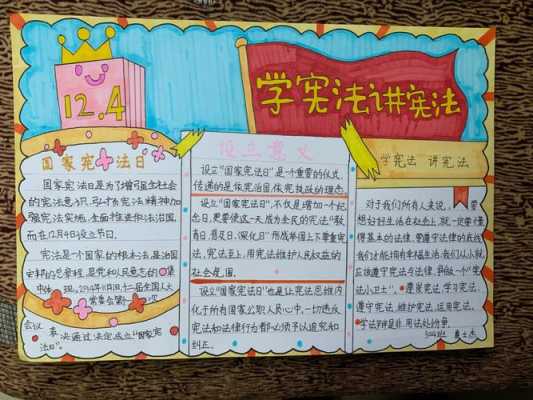 12.4
学宪法讲宪法
国家宪法日
国家宪法日是为了增强全社会
的宪法意识,弘扬宪法精神加
强宪法实施,全面推进依法治国,
而在12月4日设立节日。
宪法是一个国家的根本法,是治国
安邦的总章程,是党和人民意志的集
中体现,2014年11月1日,十二届全国人大
常委会第十次
会议
表决通过决定成立"国家宪
法日"。
设立意义
设立"国家宪法日"是一个重要的仪式,
传递的是依宪治国,依宪执政的理念
设立"国家宪法日",不仅是增加一个纪
念日,更要使这一天成为全民的宪法"教
育日,普及日,深化日"形成举国上下尊重宪
法,宪法至上,用宪法维护人民权益的
社会氛围
设立"国家宪法日"也是让宪法思维内
化于所有国家公职人员心中,一切违反
宪法和法律行为都必须予以追究和
纠正。
学宪法 讲宪法
对于我们所有人来说,要
想好好生活在社会上,就一定要懂
得基本的法律,要遵守法律的底线
我们才能拥有幸福生活,我们从小就
应该遵守法与法律,再做一个"学
法小卫士"。遵展宪法,学习宪法,
遵守宪法,维护宪法,运用宪法。
学法辨是非,用法处纷争。